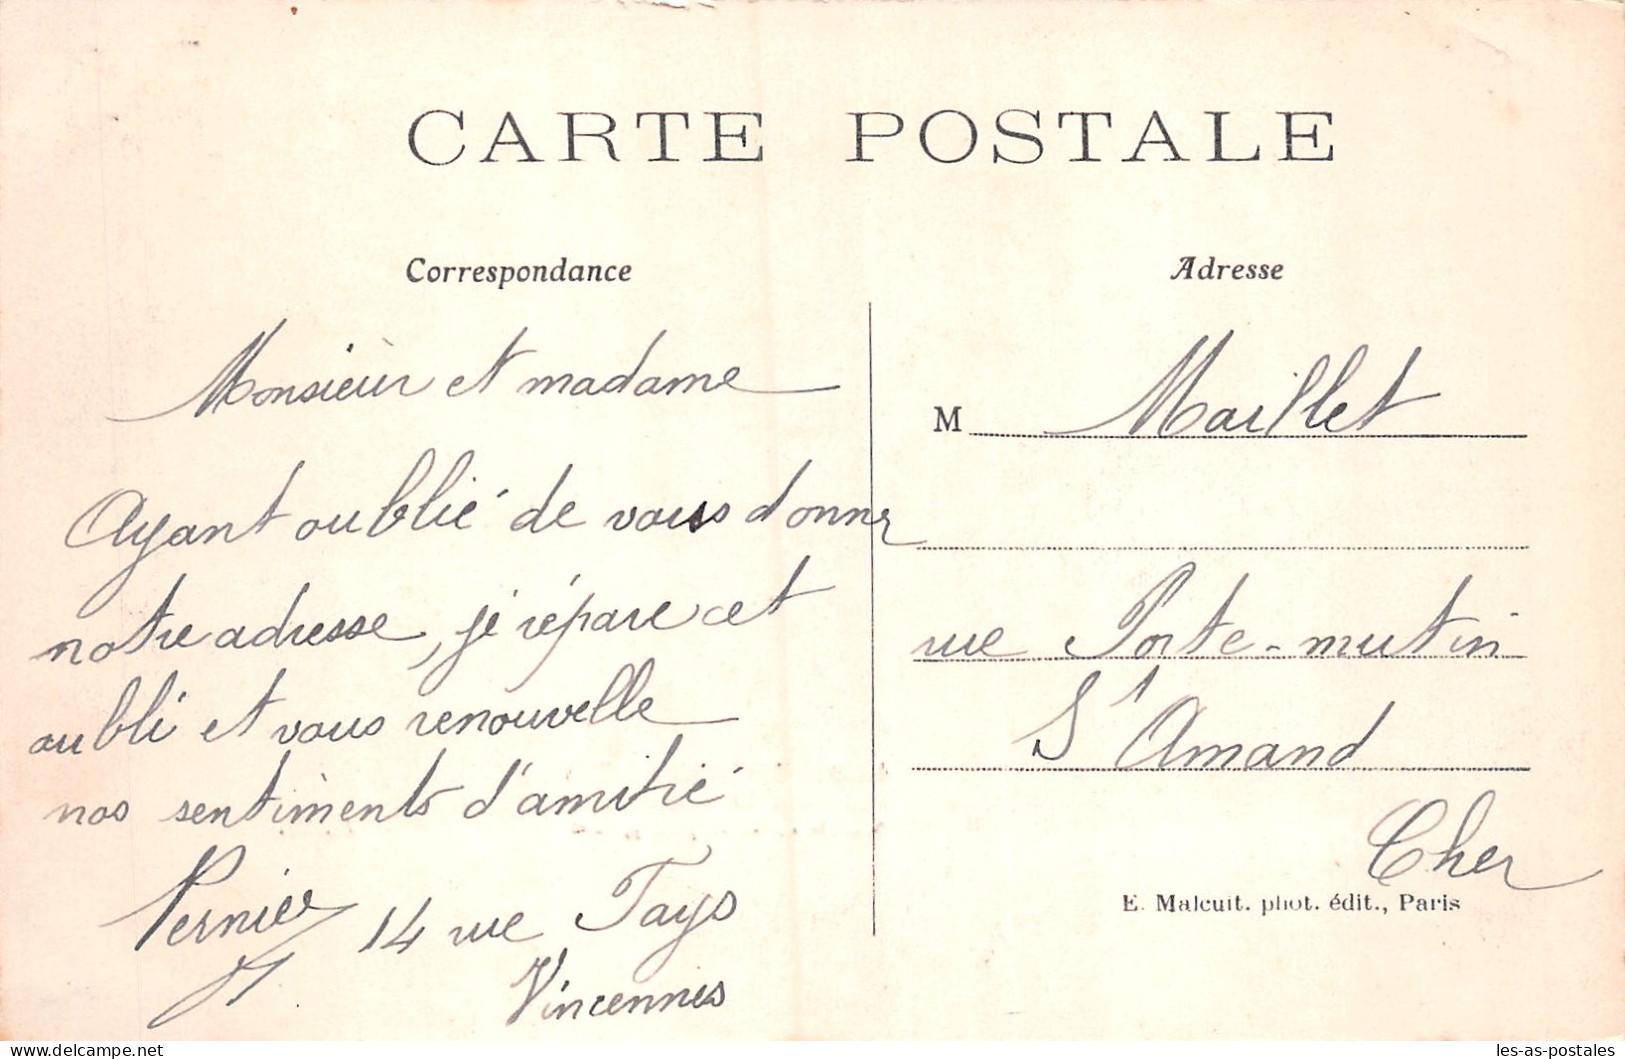 CARTE POSTALE
Correspondance
Monsieur et madame
Ayant oublié de vous donner
notre adresse, je répare cet
oubli et vous renouvelle
nos sentiments d'amitié
Pernier 14 rue Tays
Vincennes
Adresse
M Maillet
rue Porte-mutin
St Amand
Cher
E. Malcuit. phot. édit., Paris
delcampe.net
les-as-postales